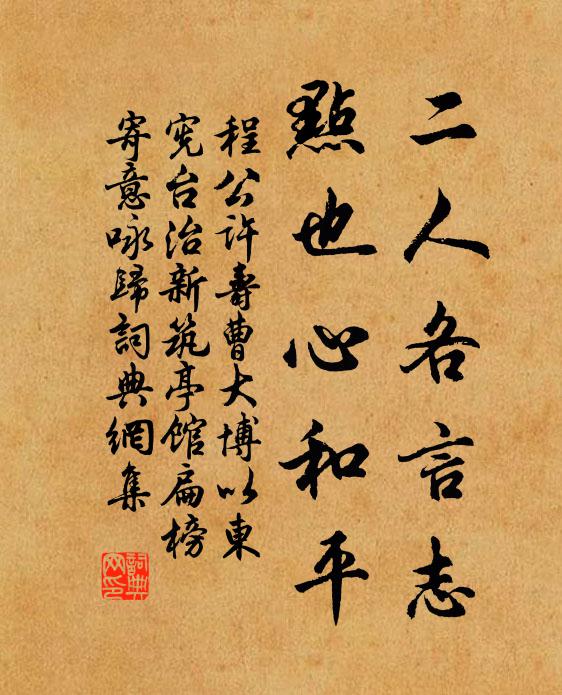 二人各言志
點也心和平
程公許壽曹大博以東
宪台治新筑亭馆扁榜
寄意咏歸詞典網集
詞典网印